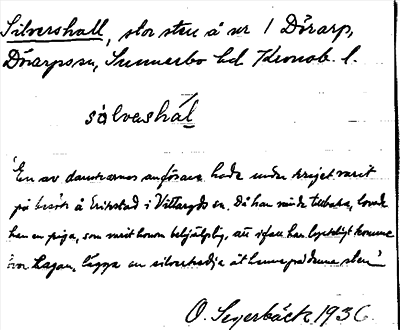 Silvershall, stor sten å nr 1 Dörarp,
Dörarps sn, Sunnerbo hd Kronob. l.
sólvashál
En av danskarnas anförare hade under kriget varit
på besök å Erikstad i Vittaryds sn. Då han vände tillbaka, lovade
han en piga, som varit honom behjälplig, att ifall han lyckligt komme
över Lagan, lägga en silverkedja åt henne på denna sten."
O. Segerbäck 1936.